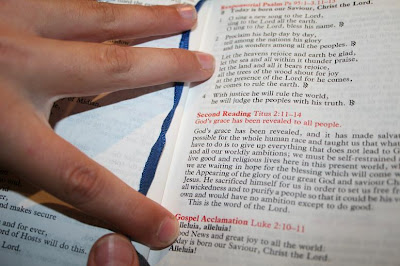 and makes secure
and for ever,
rd of Hosts will do this.
Lord.
Responsorial Psalm Ps 95:1-3.11-13
Today is born our Saviour, Christ the Lord.
O sing a new song to the Lord,
sing to the Lord all the earth.
O sing to the Lord, bless his name. ℟
Proclaim his help day by day,
tell among the nations his glory
and his wonders among all the peoples. ℟
Let the heavens rejoice and earth be glad,
let the sea and all within it thunder praise,
let the land and all it bears rejoice,
all the trees of the wood shout for joy
at the presence of the Lord for he comes,
he comes to rule the earth. ℟
4 With justice he will rule the world,
he will judge the peoples with his truth. ℟
Second Reading Titus 2:11-14
God's grace has been revealed to all people.
God's grace has been revealed, and it has made salvat
possible for the whole human race and taught us that what
have to do is to give up everything that does not lead to G
and all our worldly ambitions; we must be self-restrained
live good and religious lives here in this present world, wh
we are waiting in hope for the blessing which will come w
the Appearing of the glory of our great God and saviour Ch
Jesus. He sacrificed himself for us in order to set us free fr
all wickedness and to purify a people so that it could be his v
own and would have no ambition except to do good.
This is the word of the Lord.
Gospel Acclamation Luke 2:10-11
Alleluia, alleluia!
Good News and great joy to all the world:
Today is born our Saviour, Christ the Lord.
Alleluia!